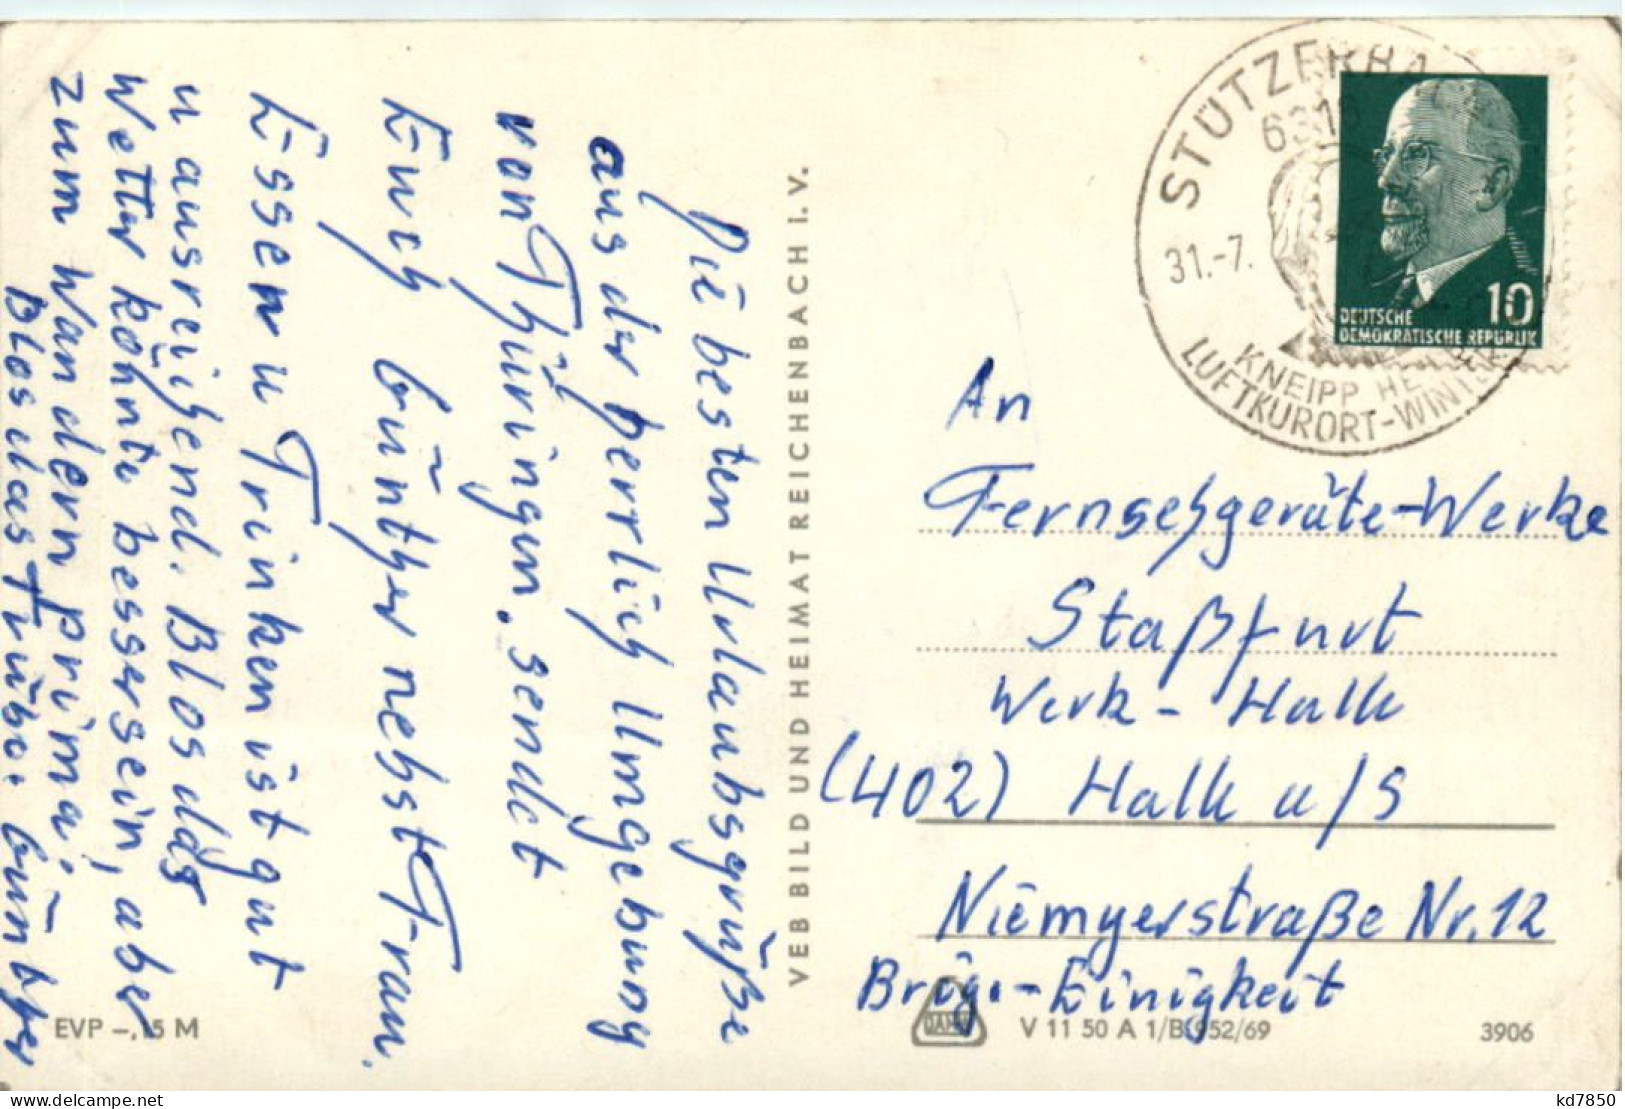 Die besten Urlaubsgrüße
aus der herrlich Umgebung
von Thüringen. sendet
Euch Günther nebst Frau.
Essen u Trinken ist gut
u ausreichend. Blos das
Wetter könnte besser sein, aber
zum Wandern prima.
Blos das Trübe. Günther
VEB BILD UND HEIMAT REICHENBACH I. V.
STÜTZERBA
6318
31.-7.
KNEIPP HE
LUFTKURORT-WINTE
10
DEUTSCHE
DEMOKRATISCHE REPUBLIK
An
Fernsehgeräte-Werke
Staßfurt
Werk - Halle
(402) Halle u/S
Niemyerstraße Nr. 12
Brig.-Einigkeit
EVP -,15 M
V 11 50 A 1/B 952/69
3906
delcampe.net
kd7850